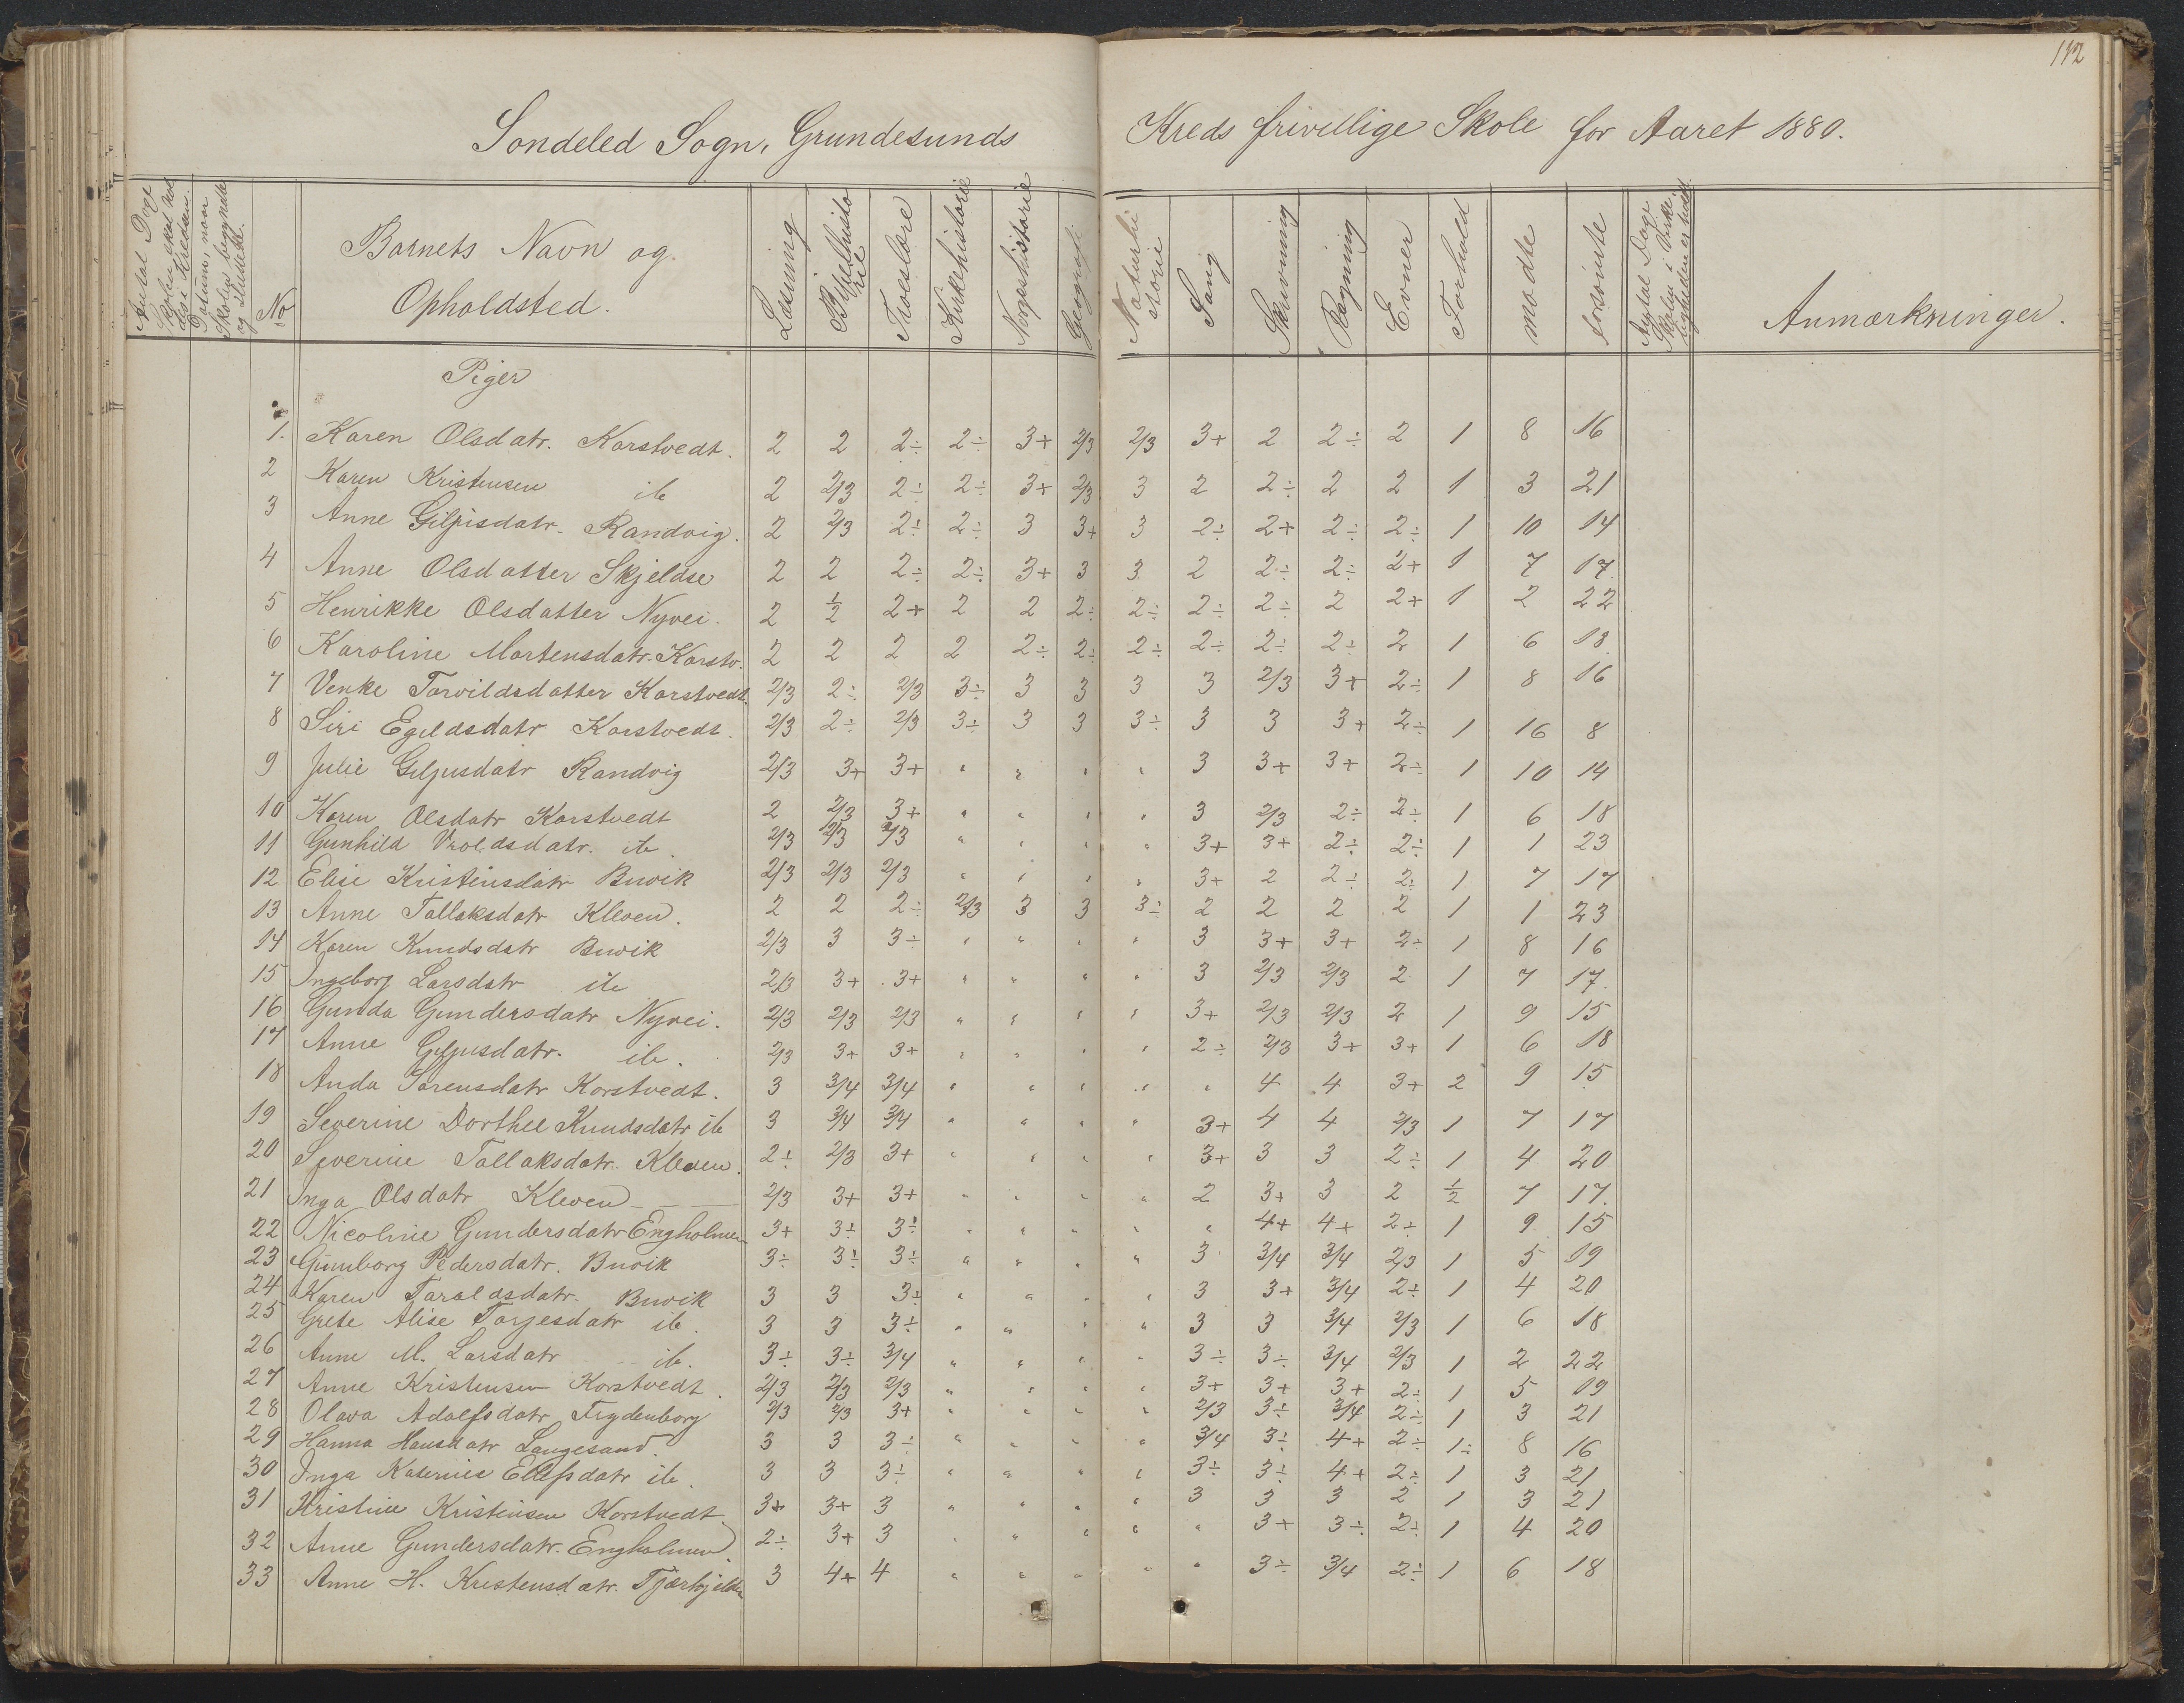 112
Søndeled Sogn, Grundesunds Kreds frivillige Skole for Aaret 1880.
Antal Dage Skolen skal holdes i Kredsen. Datum, naar Skolen begyndte og sluttede. No Barnets Navn og Opholdsted. Læsning Bibelhistorie Troeslære Kirkehistorie Norgeshistorie Geografi Naturhistorie Sang Skrivning Regning Evner Forhold mødte forsømte Antal Dage Skolen i Virkeligheden er holdt Anmærkninger.
Piger
1. Karen Olsdatr. Korstvedt. 2 2 2÷ 2÷ 3+ 2/3 2/3 3+ 2 2÷ 2 1 8 16
2 Karen Kristensen ib 2 2/3 2÷ 2÷ 3+ 2/3 3 2 2÷ 2 2 1 3 21
3 Anne Giljusdatr. Randvig. 2 2/3 2÷ 2÷ 3 3+ 3 2÷ 2+ 2÷ 2÷ 1 10 14
4 Anne Olsdatter Skjeldsø 2 2 2÷ 2÷ 3+ 3 3 2 2÷ 2÷ 2+ 1 7 17
5 Henrikke Olsdatter Nyvei. 2 1/2 2+ 2 2 2÷ 2÷ 2÷ 2÷ 2 2+ 1 2 22
6 Karoline Mortensdatr. Korstv. 2 2 2 2 2÷ 2÷ 2÷ 2÷ 2÷ 2÷ 2 1 6 18.
7 Venke Torvildsdatter Korstvedt. 2/3 2÷ 2/3 3÷ 3 3 3 3 2/3 3+ 2÷ 1 8 16
8 Siri Egildsdatr Korstvedt. 2/3 2÷ 2/3 3÷ 3 3 3÷ 3 3 3+ 2÷ 1 16 8
9 Julie Giljusdatr Randvig 2/3 3+ 3+ " " " " 3 3+ 3+ 2÷ 1 10 14
10 Karen Olsdatr Korstvedt 2 2/3 3+ " " " " 3 2/3 2÷ 2÷ 1 6 18
11 Gunhild Vroldsdatr. ib. 2/3 2/3 2/3 " " " " 3+ 3+ 2÷ 2÷ 1 1 23
12 Elise Kristensdatr Buvik 2/3 2/3 2/3 " " " " 3+ 2 2÷ 2÷ 1 7 17
13 Anne Tallaksdatr Kleven. 2 2 2÷ 2/3 3 3 3÷ 2 2 2 2 1 1 23
14 Karen Knudsdatr Buvik 2/3 3 3÷ " " " " 3 3+ 3+ 2÷ 1 8 16
15 Ingeborg Larsdatr ib 2/3 3+ 3+ " " " " 3 2/3 2/3 2 1 7 17.
16 Gunda Gundersdatr Nyvei. 2/3 2/3 2/3 " " " " 3+ 2/3 2/3 2 1 9 15
17 Anne Giljusdatr. ib. 2/3 3+ 3+ " " " " 2÷ 2/3 3+ 3+ 1 6 18
18 Anda Sørensdatr Korstvedt. 3 3/4 3/4 " " " " " 4 4 3+ 2 9 15
19 Severine Dorthee Knudsdatr ib 3 3/4 3/4 " " " " 3+ 4 4 2/3 1 7 17
20 Severine Tallaksdatr. Kleven. 2÷ 2/3 3+ " " " " 3+ 3 3 2÷ 1 4 20
21 Inga Olsdatr Kleven 2/3 3+ 3+ " " " " 2 3+ 3 2 1/2 7 17.
22 Nicoline Gundersdatr Engholmen 3+ 3÷ 3÷ " " " " " 4+ 4+ 2÷ 1 9 15
23 Gunborg Pedersdatr. Buvik 3÷ 3÷ 3÷ " " " " 3 3/4 3/4 2/3 1 5 19
24 Karen Taraldsdatr. Buvik 3 3 3÷ " " " " 3 3+ 3/4 2÷ 1 4 20
25 Grete Alise Torjesdatr ib. 3 3 3÷ " " " " 3 3 3/4 2/3 1 6 18
26 Anne M. Larsdatr ib. 3÷ 3÷ 3/4 " " " " 3÷ 3÷ 3/4 2/3 1 2 22
27 Anne Kristensen Korstvedt. 2/3 2/3 2/3 " " " " 3+ 3+ 3+ 2÷ 1 5 19
28 Olava Adolfsdatr Frydenborg 2/3 2/3 3+ " " " " 2/3 3÷ 3/4 2÷ 1 3 21
29 Hanna Hansdatr Langesand. 3 3 3÷ " " " " 3/4 3÷ 4+ 2÷ 1÷ 8 16
30 Inga Katernie Ellefsdatr ib. 3 3 3÷ " " " " 3÷ 3÷ 4+ 2÷ 1 3 21
31 Kristine Kristensen Korstvedt. 3+ 3+ 3 " " " " 3 3 3 2 1 3 21
32 Anne Gundersdatr. Engholmen. 2÷ 3+ 3 " " " " " 3+ 3÷ 2÷ 1 4 20
33 Anne H. Kristensdatr. 3 4+ 4 " " " " " 3÷ 3/4 2÷ 1 6 18